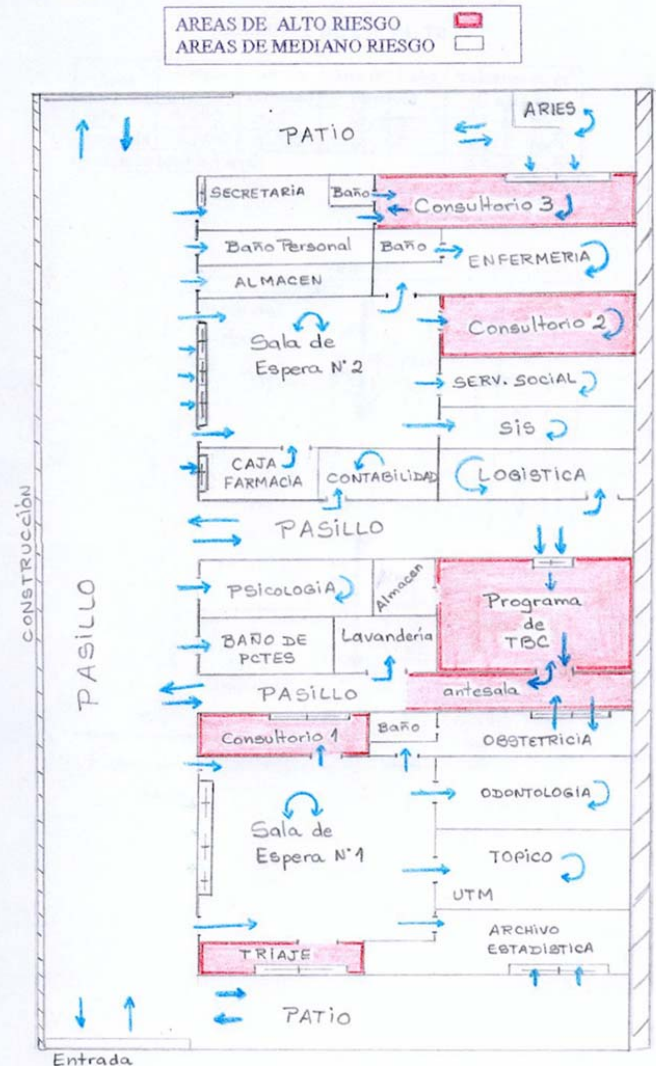 AREAS DE ALTO RIESGO
AREAS DE MEDIANO RIESGO
ARIES
PATIO
SECRETARIA
Baño
Consultorio 3
Baño Personal
Baño
ENFERMERIA
ALMACEN
Sala de
Espera N°2
Consultorio 2
SERV. SOCIAL
SIS
CAJA
FARMACIA
CONTABILIDAD
LOGISTICA
CONSTRUCCIÓN
PASILLO
PASILLO
PSICOLOGIA
Almacen
Programa
de
TBC
BAÑO DE
PCTES
Lavandería
PASILLO
antesala
Consultorio 1
Baño
OBSTETRICIA
Sala de
Espera N°1
ODONTOLOGIA
TOPICO
UTM
ARCHIVO
ESTADISTICA
TRIAJE
PATIO
Entrada